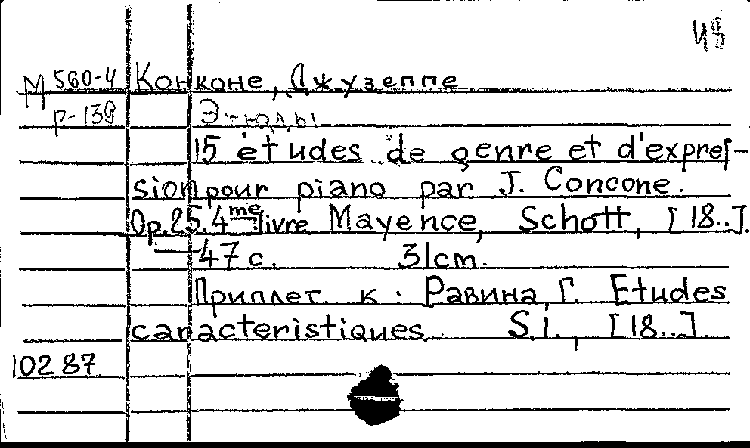 48
М 560-4 Конконе, Джузеппе
р-138 Этюды
15 études de genre et d'expres-
sion pour piano par J. Concone.
Op.25.4me livre Mayence, Schott, [18..].
47 с. 31cm.
Приплет. к: Равина, Г. Etudes
caracteristiques. S.l., [18..]
10287